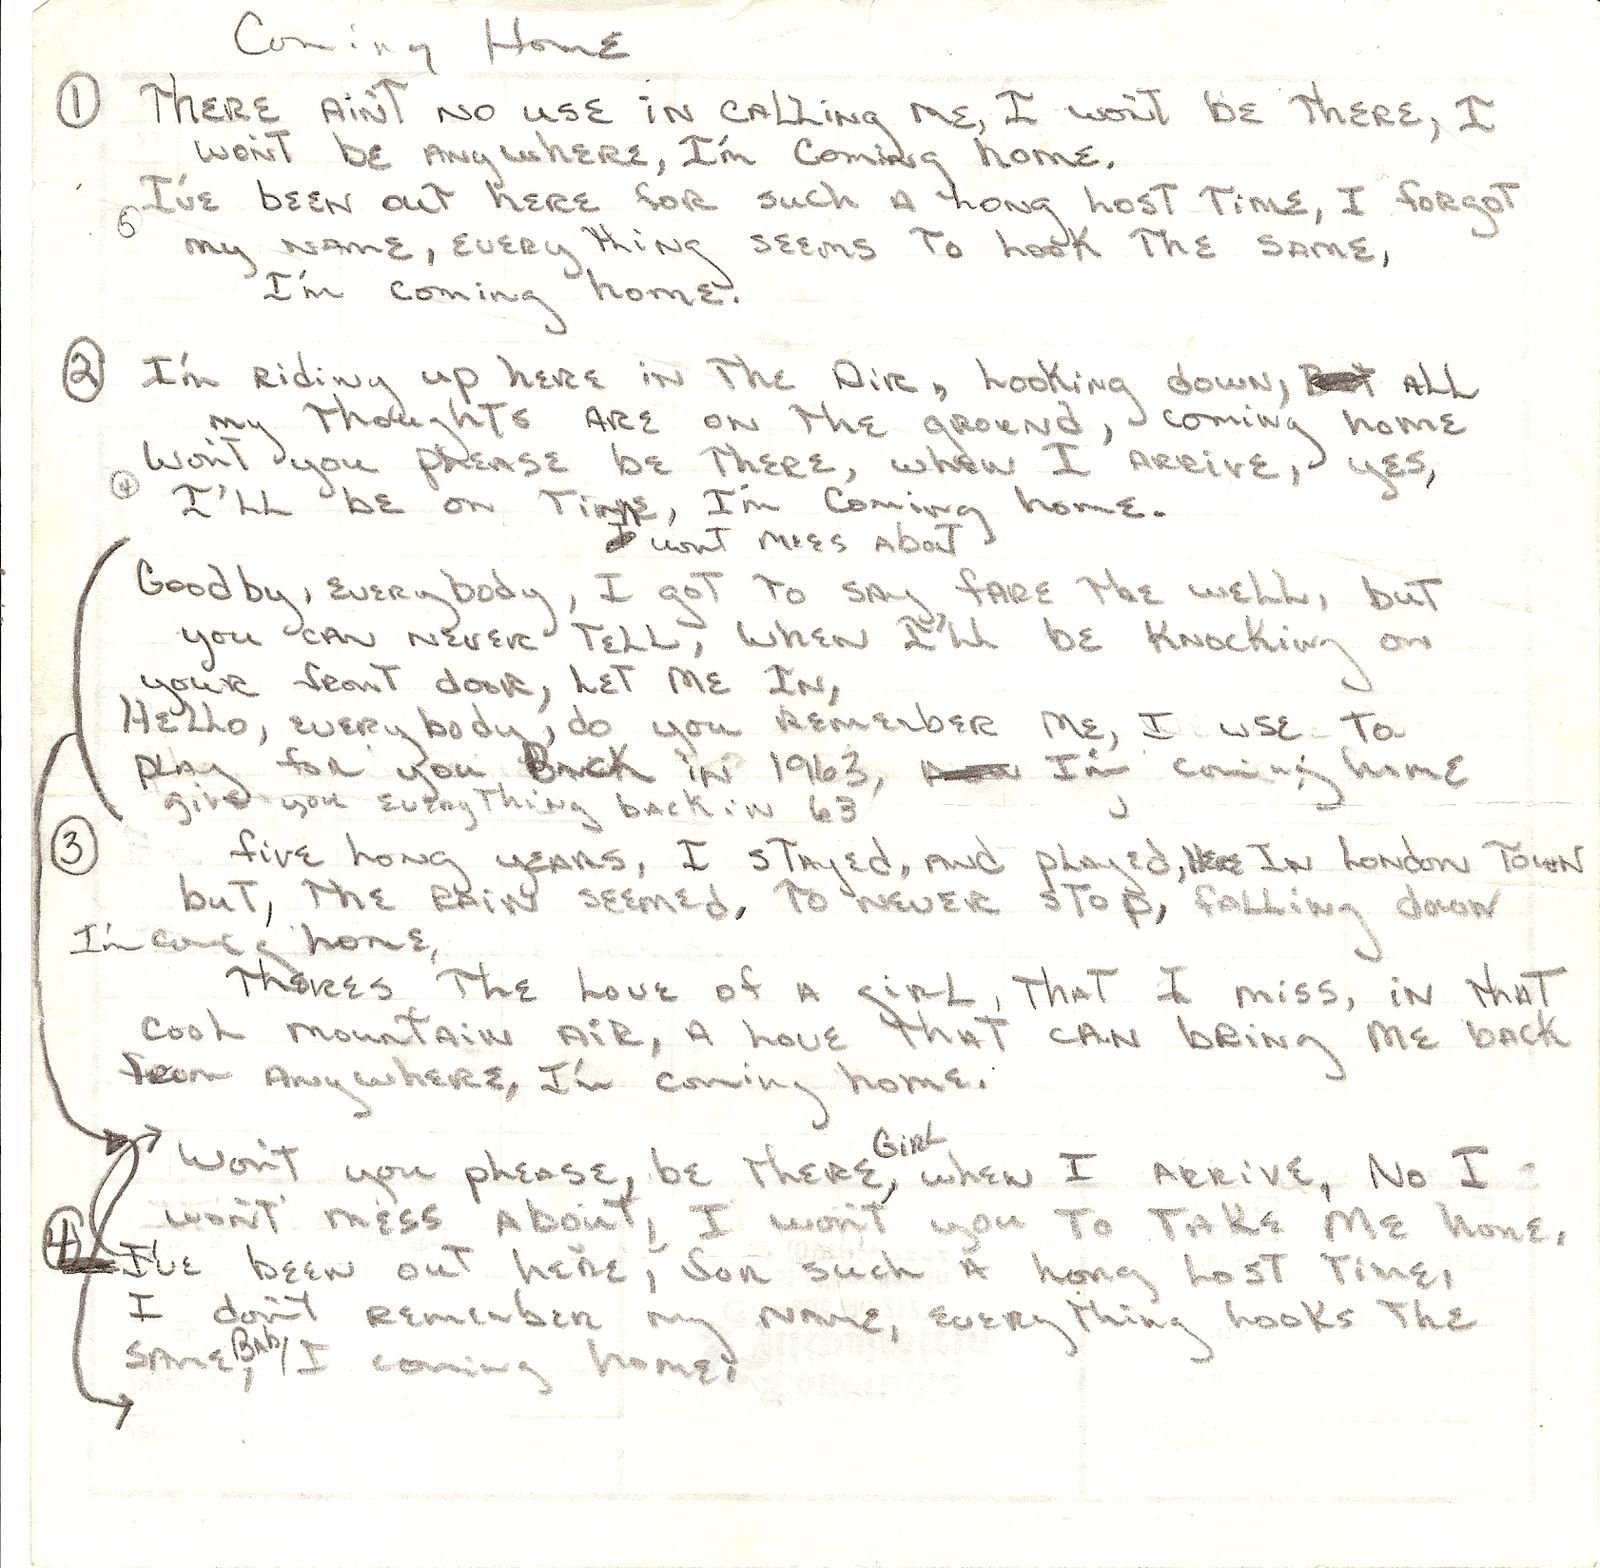 Coming Home
① THERE AiN'T NO USE iN CALLiNg ME, I WON'T bE THERE, I
WON'T bE ANyWHERE, I'm Coming homE.
I'VE bEEN OUT HERE foR such A Long Lost TimE, I forgoT
⑥
my NAME, EVERyThiNg SEEms To Look THE SAME,
I'm coming homE.
② I'm RidiNg up hERE iN THE AiR, LooKiNg down, ALL
my ThoughTs ARE ON THE gROUNd, coming homE
WoN'T you pLEASE bE THERE, whEN I ARRiVE, yES,
④
I'LL bE oN TimE, I'm Coming homE.
I wonT mESS AbouT
Goodby, EVERybody, I goT To SAy, fARE THE WELL, buT
you CAN NEVER TELL, WhEN I'LL bE KNocKiNg oN
youR fRoNT dooR, LET ME IN,
HELLo, EVERybody, do you REmEmbER ME, I USE To
pLAy foR you BAcK iN 1963, I'm coming homE
givE you EVERyThiNg bAcK iN 63
③ fivE LoNg yEARS, I STAyEd, ANd pLAyEd, IN LoNdoN TowN
buT, THE RAiN SEEmEd, To NEVER STop, fALLiNg dowN
I'm coming homE,
ThERES THE LovE of A giRL, THAT I miss, iN THAT
cooL mouNTAiN AiR, A LovE THAT CAN bRiNg ME bAcK
fRom ANywHERE, I'm coming homE.
GiRL
WoN'T you pLEASE, bE THERE, whEN I ARRiVE, No I
woN'T mESS AbouT, I woN'T you To TAKE ME homE.
④ I'VE bEEN ouT hERE, foR such A LoNg LosT TimE,
I doN'T REmEmbER my NAmE, EVERyThiNg LooKs THE
SAmE, BAby I coming homE.